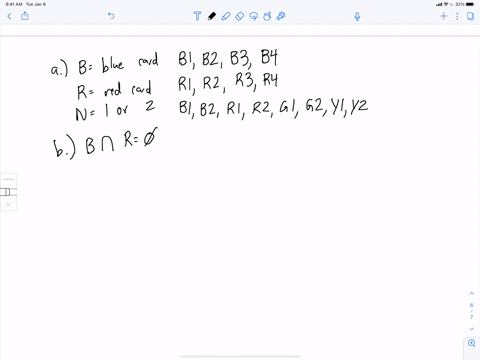 9:41 AM Tue Jan 9
32%
a.) B = blue card B1, B2, B3, B4
R = red card R1, R2, R3, R4
N = 1 or 2 B1, B2, R1, R2, G1, G2, Y1, Y2
b.) B ∩ R = ∅
6
/
7